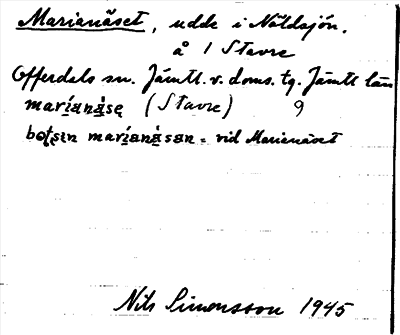 Marianäset, udde i Näldsjön.
å 1 Stavre
Offerdals sn. Jämtl. v. doms. tg. Jämtl län
maríanàsę (Stavre) 9
maríanàsan = vid Marianäset
Nils Simonsson 1945